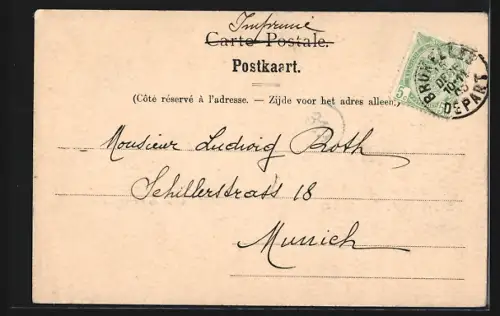 Imprimé
Carte Postale.
Postkaart.
(Côté réservé à l'adresse. — Zijde voor het adres alleen.)
BRUXELLES
DEPART
5
Monsieur Ludwig Roth
Schillerstrass 18
Munich